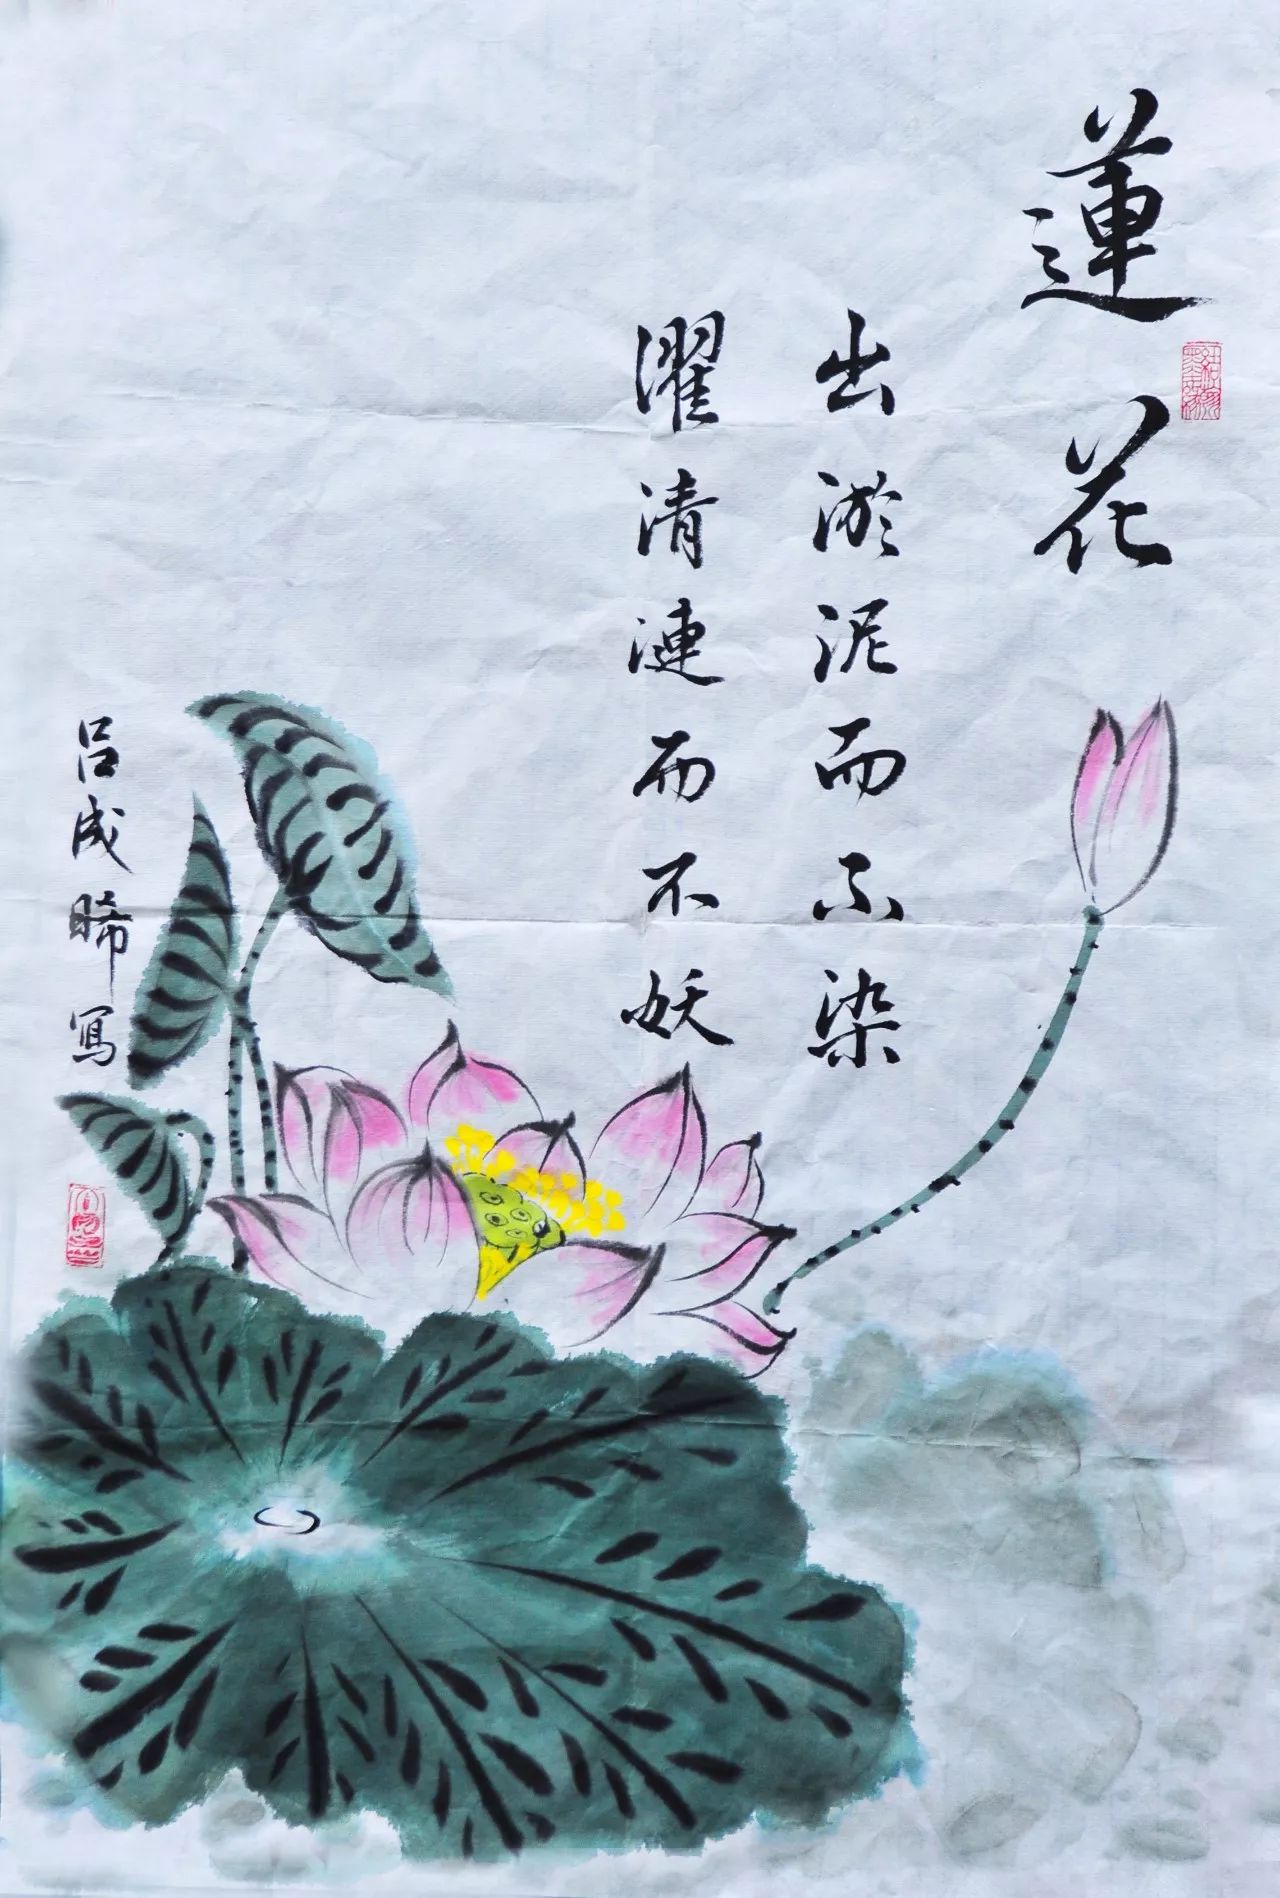 蓮花
出淤泥而不染
濯清漣而不妖
吕成晞寫